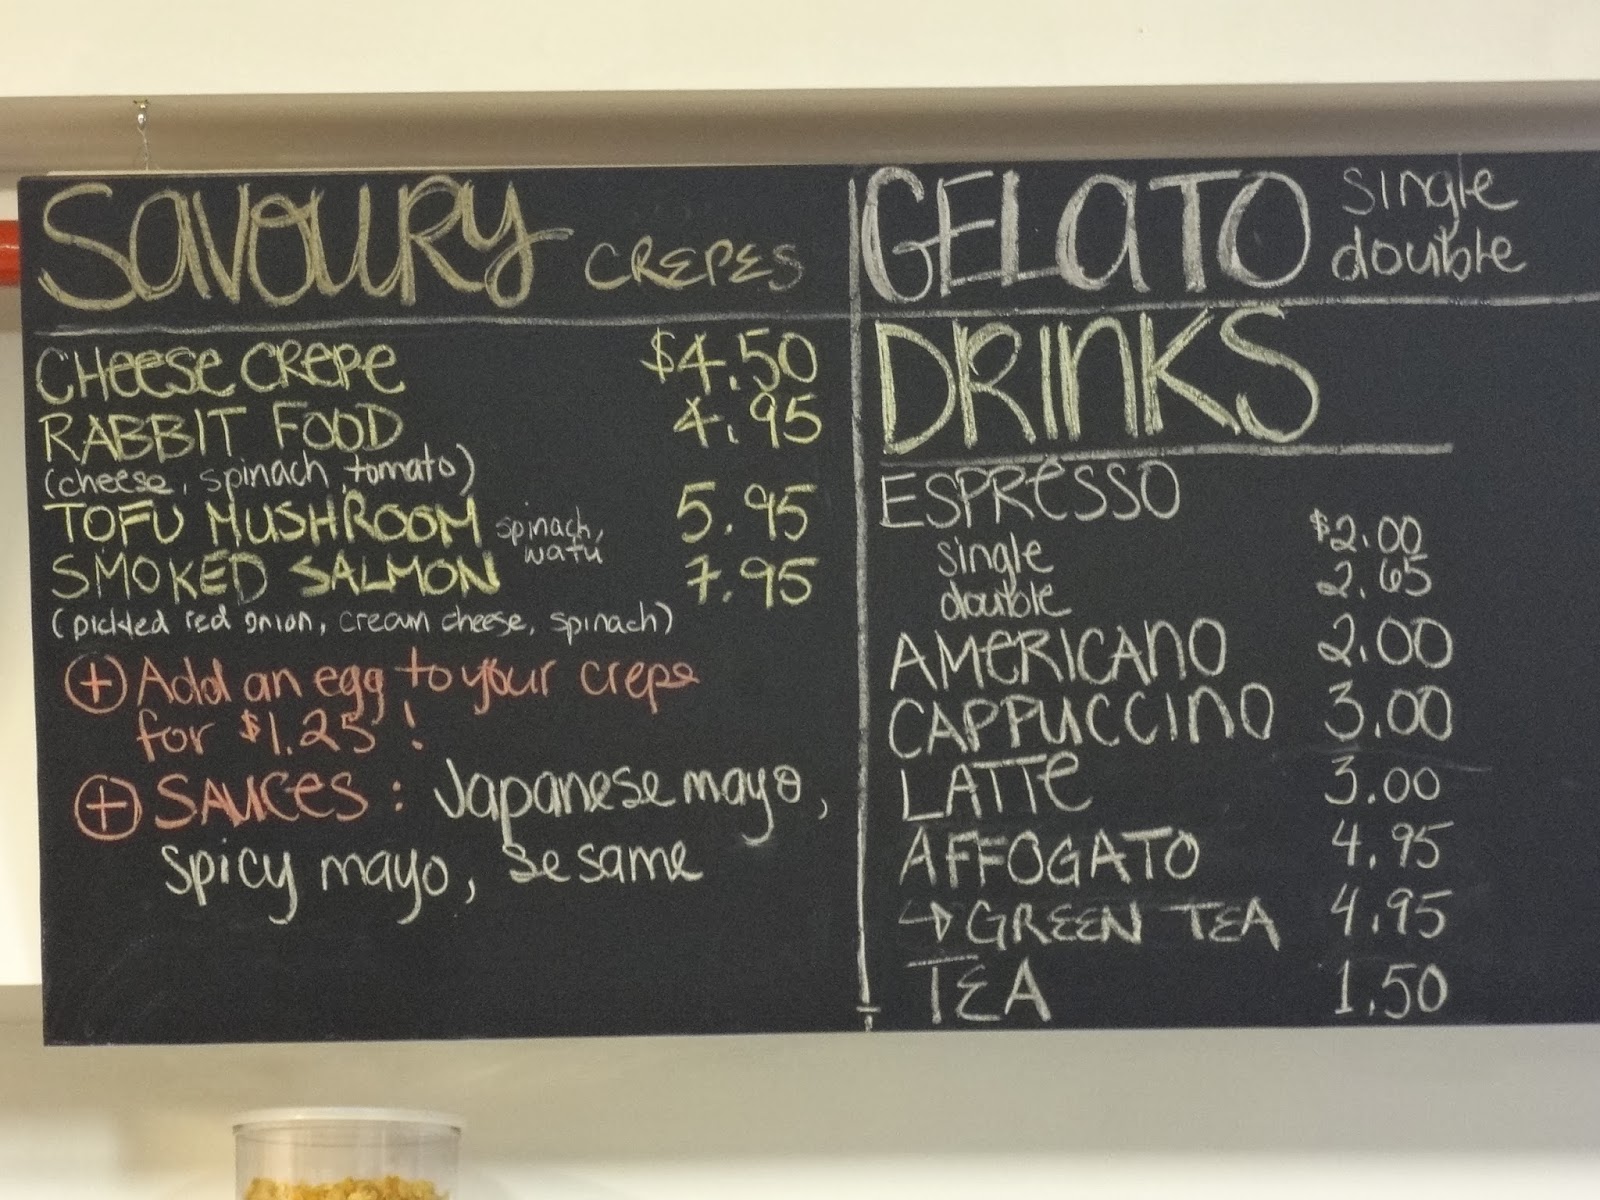 SAVOURY CREPES
CHEESE CREPE $4.50
RABBIT FOOD 4.95
(cheese, spinach, tomato)
TOFU MUSHROOM spinach, 5.95
wafu
SMOKED SALMON 7.95
(pickled red onion, cream cheese, spinach)
+ Add an egg to your crepe
for $1.25!
+ SAUCES: Japanese mayo,
spicy mayo, sesame
GELATO single
double
DRINKS
ESPRESSO
single $2.00
double 2.65
AMERICANO 2.00
CAPPUCCINO 3.00
LATTE 3.00
AFFOGATO 4.95
↳ GREEN TEA 4.95
TEA 1.50